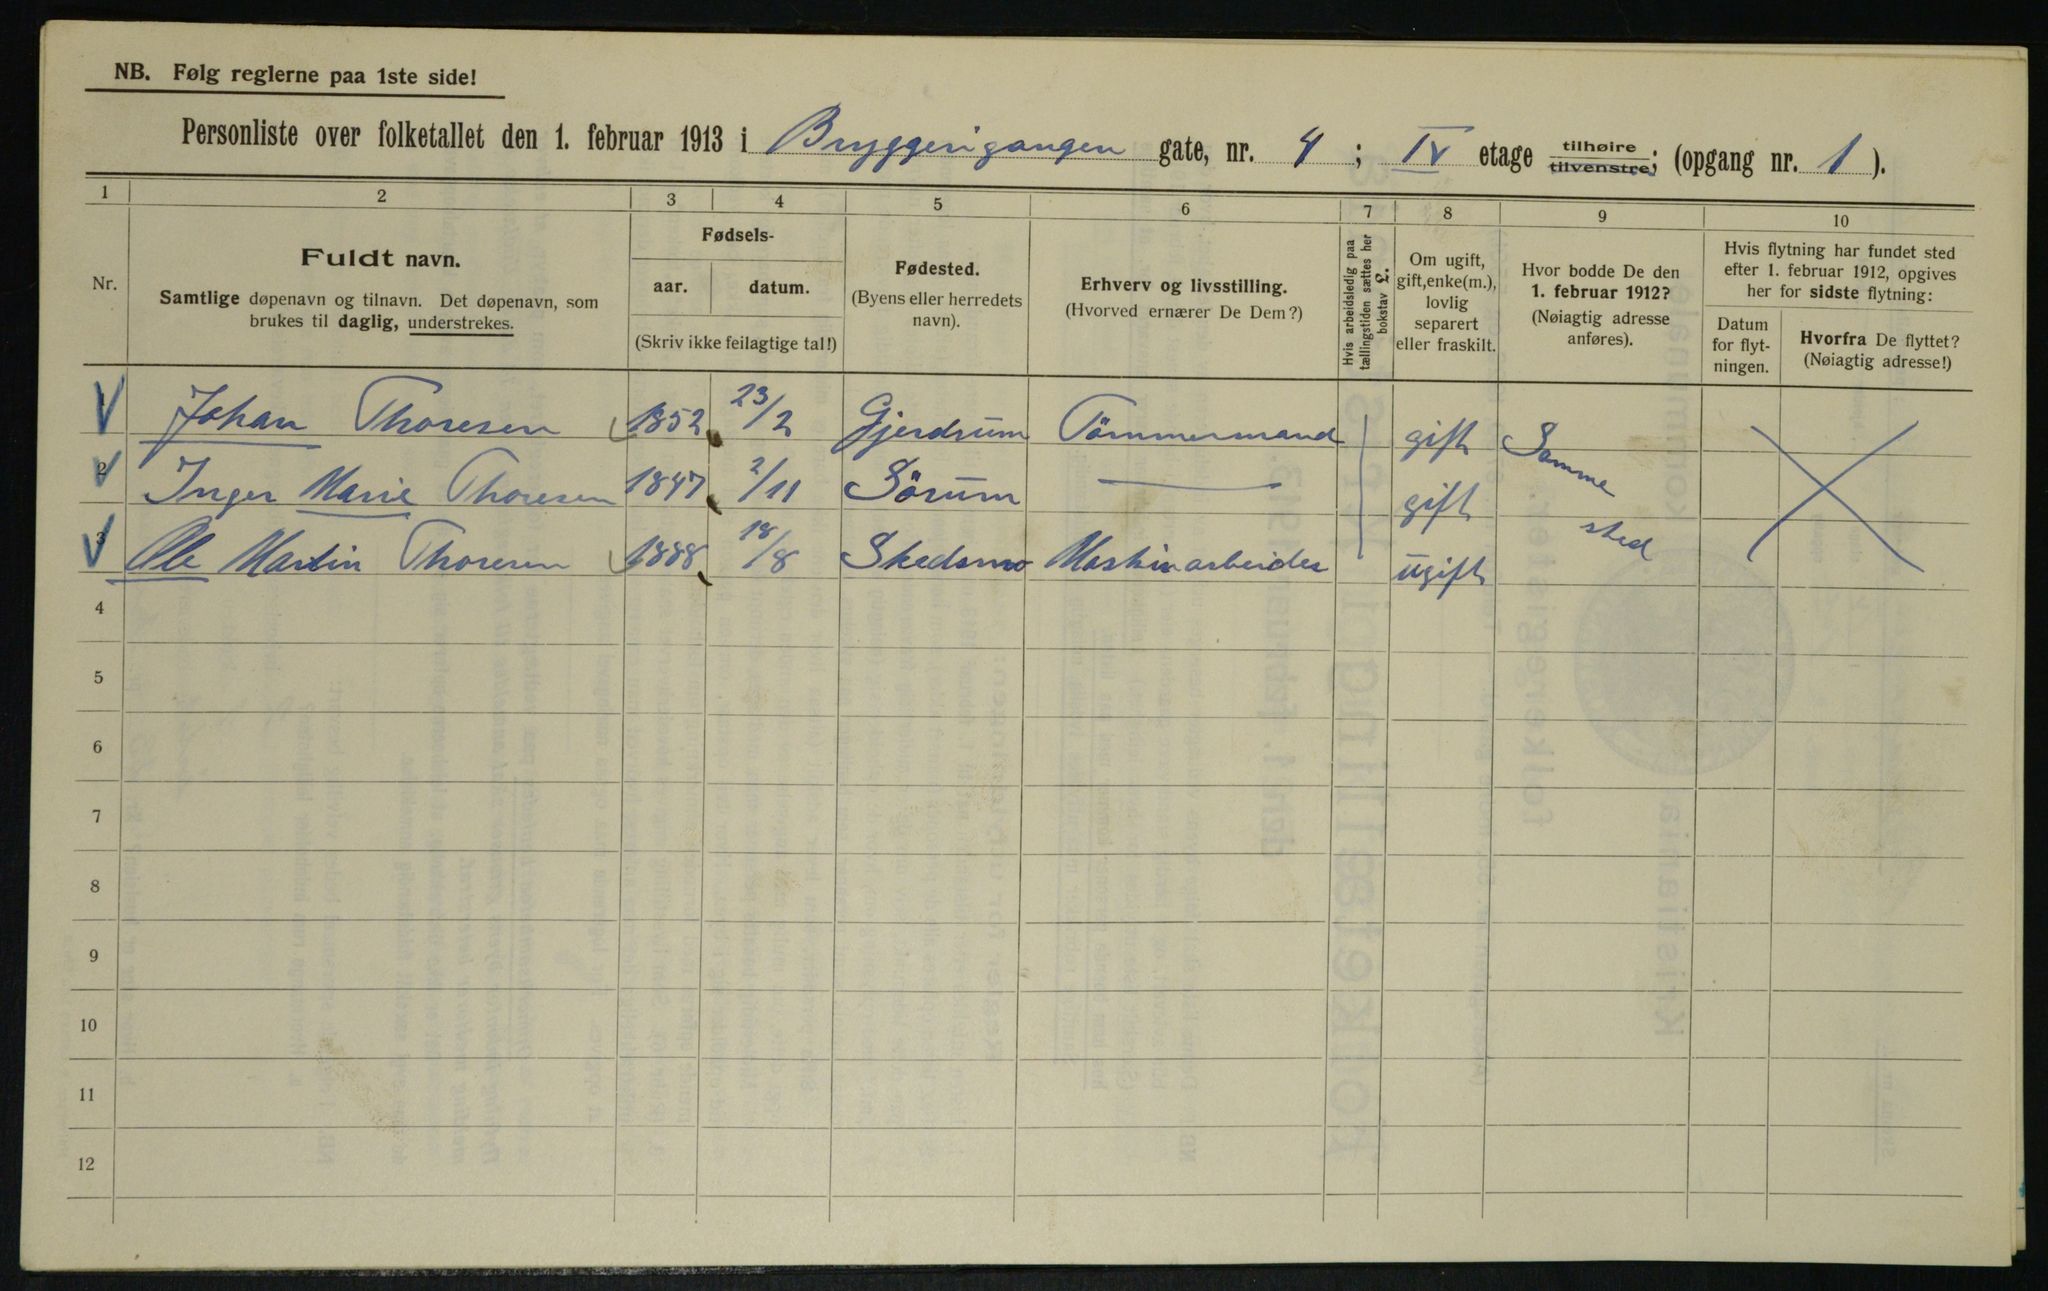 NB. Følg reglerne paa 1ste side!
Personliste over folketallet den 1. februar 1913 i Bryggerigangen gate, nr. 4; IV etage tilhøire tilvenstre; (opgang nr. 1).
1 2 3 4 5 6 7 8 9 10
Nr.
Fuldt navn.
Samtlige døpenavn og tilnavn. Det døpenavn, som
brukes til daglig, understrekes.
Fødsels-
aar. datum.
(Skriv ikke feilagtige tal!)
Fødested.
(Byens eller herredets
navn).
Erhverv og livsstilling.
(Hvorved ernærer De Dem?)
Hvis arbeidsledig paa
tællingstiden sættes her
bokstav £.
Om ugift,
gift, enke(m.),
lovlig
separert
eller fraskilt.
Hvor bodde De den
1. februar 1912?
(Nøiagtig adresse
anføres).
Hvis flytning har fundet sted
efter 1. februar 1912, opgives
her for sidste flytning:
Datum
for flyt-
ningen.
Hvorfra De flyttet?
(Nøiagtig adresse!)
1 Johan Thoresen 1852 23/2 Gjerdrum Tömmermand gift Samme
2 Inger Marie Thoresen 1847 2/11 Sörum — gift sted
3 Ole Martin Thoresen 1888 18/8 Skedsmo Maskinarbeider ugift
4
5
6
7
8
9
10
11
12